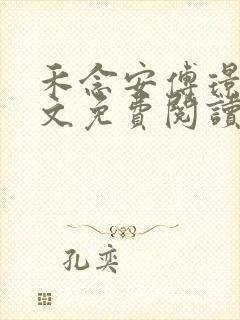 禾念安傅璟
文免費閱讀
孔奕